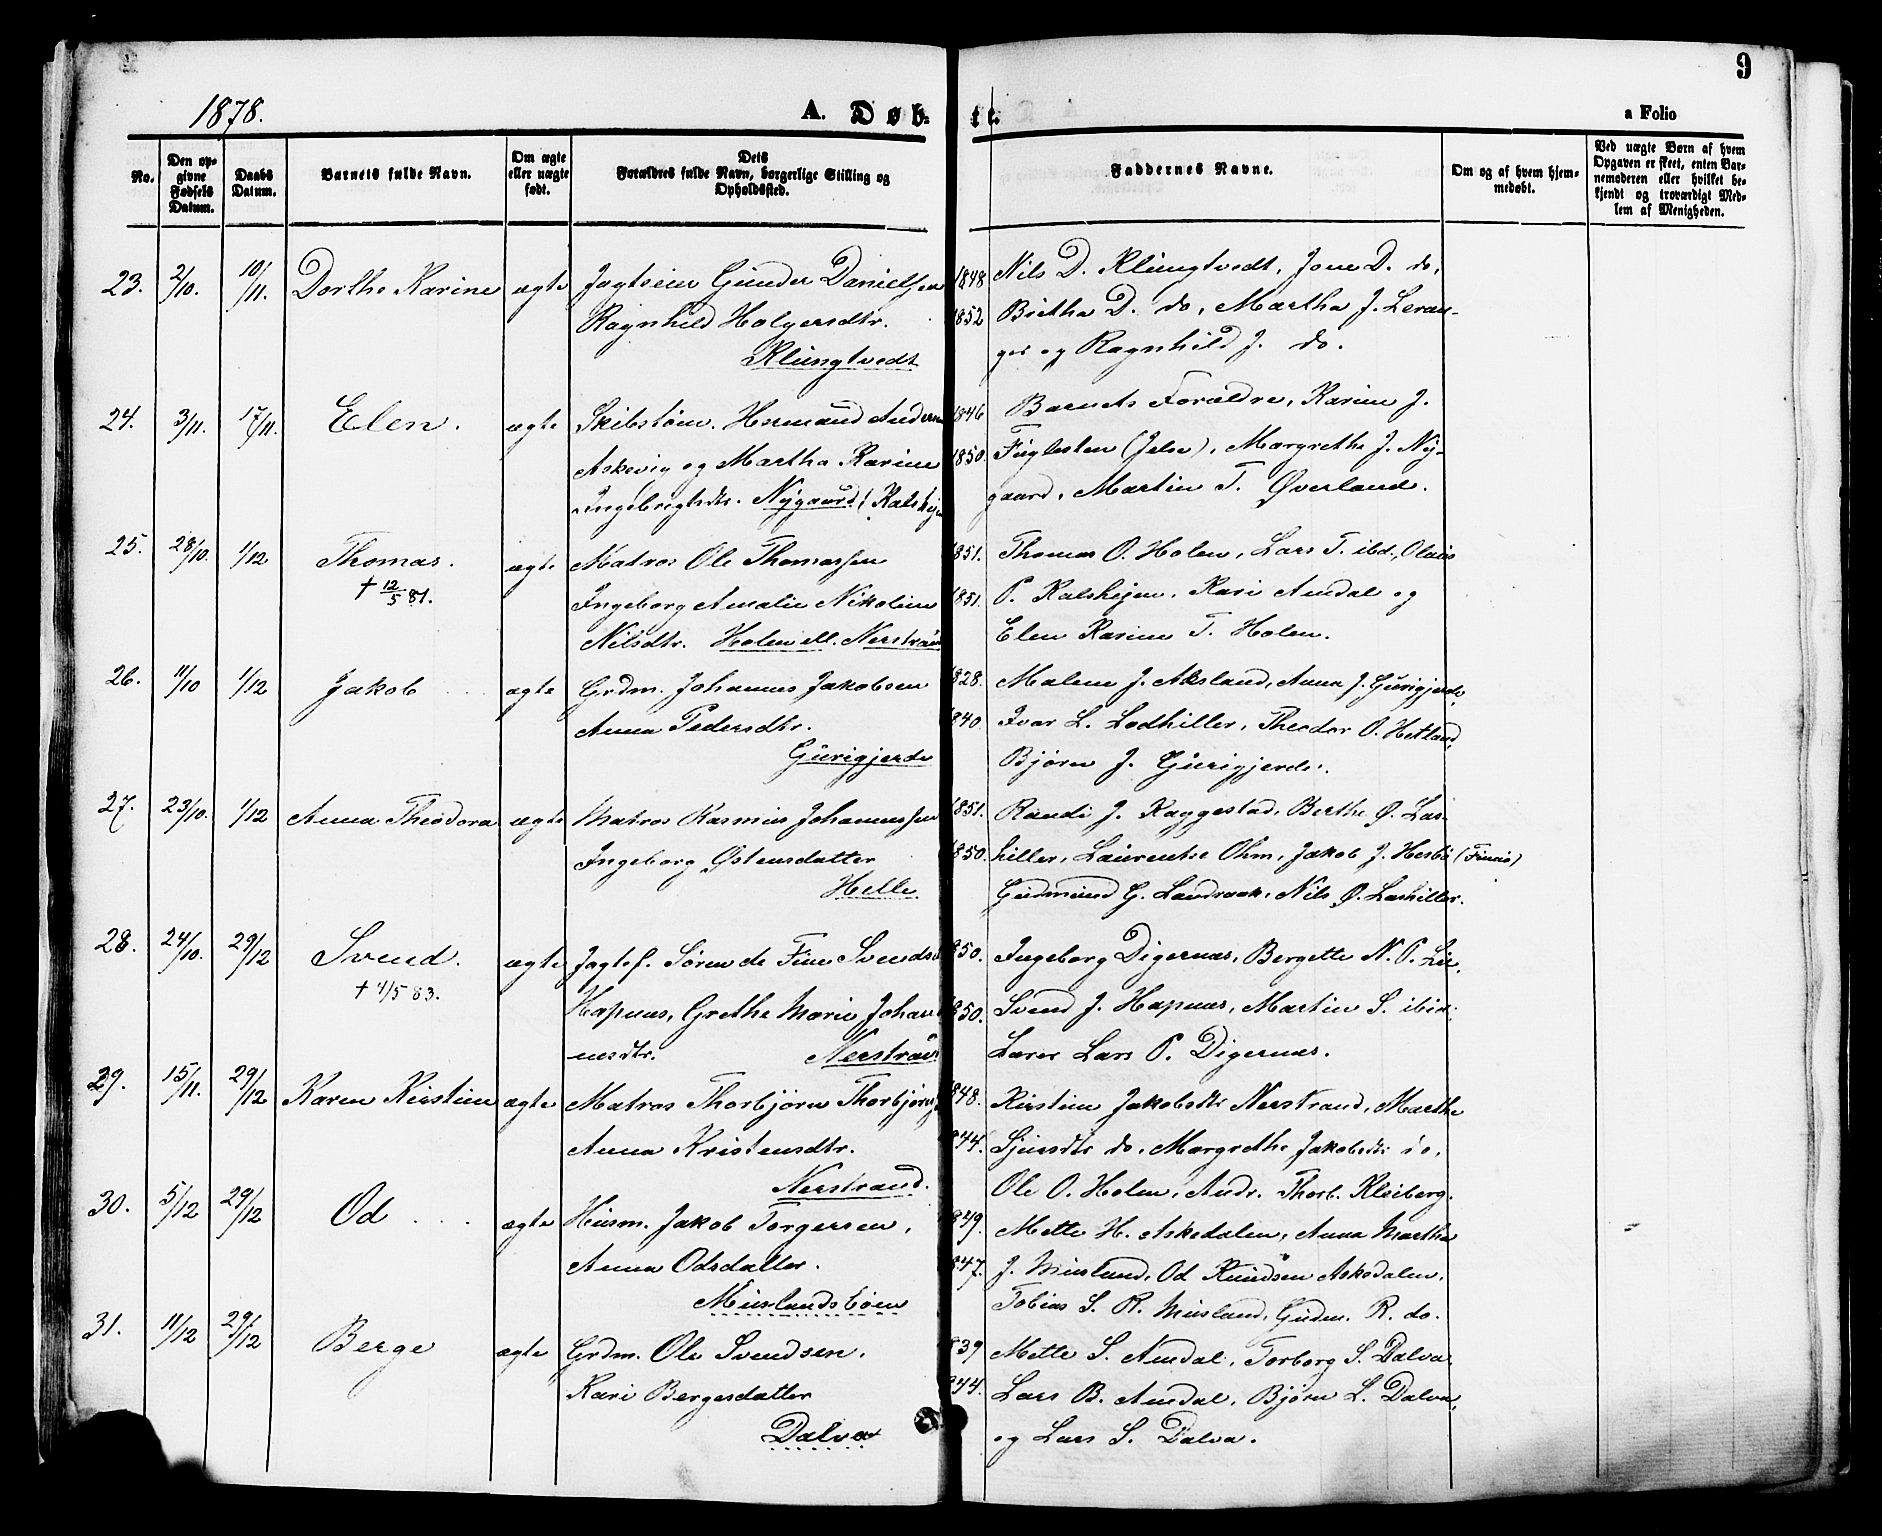 9
1878.
A. Døb-
te.
a Folio
No.
Den op-
givne
Fødsels
Datum.
Daabs
Datum.
Barnets fulde Navn.
Om ægte
eller uægte
født.
Dets
Forældres fulde Navn, borgerlige Stilling og
Opholdssted.
Faddernes Navne.
Om og af hvem hjem-
medøbt.
Ved uægte Børn af hvem
Opgaven er skeet, enten Bar-
nemoderen eller hvilket be-
kjendt og troværdigt Med-
lem af Menigheden.
23. 2/10. 10/11. Dorthe Karine ægte Jagteier Gunder Danielsen 1848 Nils D. Klungtvedt, Jone D. do,
Ragnhild Holgersdtr. 1852 Britha D. do, Martha J. Leran-
Klungtvedt ger og Ragnhild J. do.
24. 3/11. 17/11. Elen. ægte Skibstøm. Hermand Anders 1846 Barnets Forældre, Karine J.
Askevig og Martha Karine 1850. Fuglesten (Jelse), Margrethe J. Ny-
Ingebrigtsdtr. Nygaard / Kalshejen gaard, Martin T. Øverland.
25. 28/10. 1/12 Thomas. ægte Matros Ole Thomassen 1851. Thomas O. Holen, Lars T. ibd., Olaus
† 12/5 81. Ingeborg Amalie Nikoline 1851. P. Kalshejen, Kari Amdal og
Nilsdtr. Holen ell. Nerstrand Elen Karine T. Holen.
26. 11/10 1/12 Jakob ægte Grdm. Johannes Jakobsen 1828. Malene J. Aksland, Anna J. Gurigjerde,
Anna Pedersdtr. 1840 Ivar L. Ladhiller, Theodor O. Hetland,
Gurigjerde Bjørn J. Gurigjerde.
27. 23/10. 1/12 Anna Theodora ægte Matros Rasmus Johannessen 1851. Randi J. Raggestad, Berthe Ø. Las-
Ingeborg Østensdatter 1850. hiller, Laurentse Ohm, Jakob J. Hesbø (Finnø)
Helle Gudmund G. Landraak, Nils Ø. Lashiller.
28. 24/10. 29/12 Svend. ægte Jagtef. Søren de Fine Svends 1850. Ingeborg Digernæs, Bergette N. P. Lie,
† 4/5 83. Hapnæs, Grethe Marie Johan 1850. Svend J. Hapnæs, Martin S. ibid;
nesdtr. Nerstrand Lærer Lars P. Digernæs.
29. 15/11. 29/12 Karen Kirstine ægte Matros Thorbjørn Thorbjørns 1848. Kirstine Jakobsdtr Nerstrand, Marthe
Anna Kristensdtr. 1844. Sjursdtr do, Margrethe Jakobsdtr do,
Nerstrand. Ole O. Holen, Andr. Thorb. Kleiberg.
30. 5/12 29/12 Od ægte Husm. Jakob Torgersen, 1849. Mette H. Askedalen, Anna Martha
Anna Odsdatter. 1847. J. Musland, Od Knudsen Askedalen,
Muslandsbøen Tobias S. R. Musland, Gudm. R. do.
31. 11/12 29/12 Berge ægte Grdm. Ole Svendsen, 1839 Mette S. Amdal, Torborg S. Dalva
Kari Bergesdatter 1844. Lars B. Amdal, Bjørn L. Dalva,
Dalva og Lars S. Dalva.